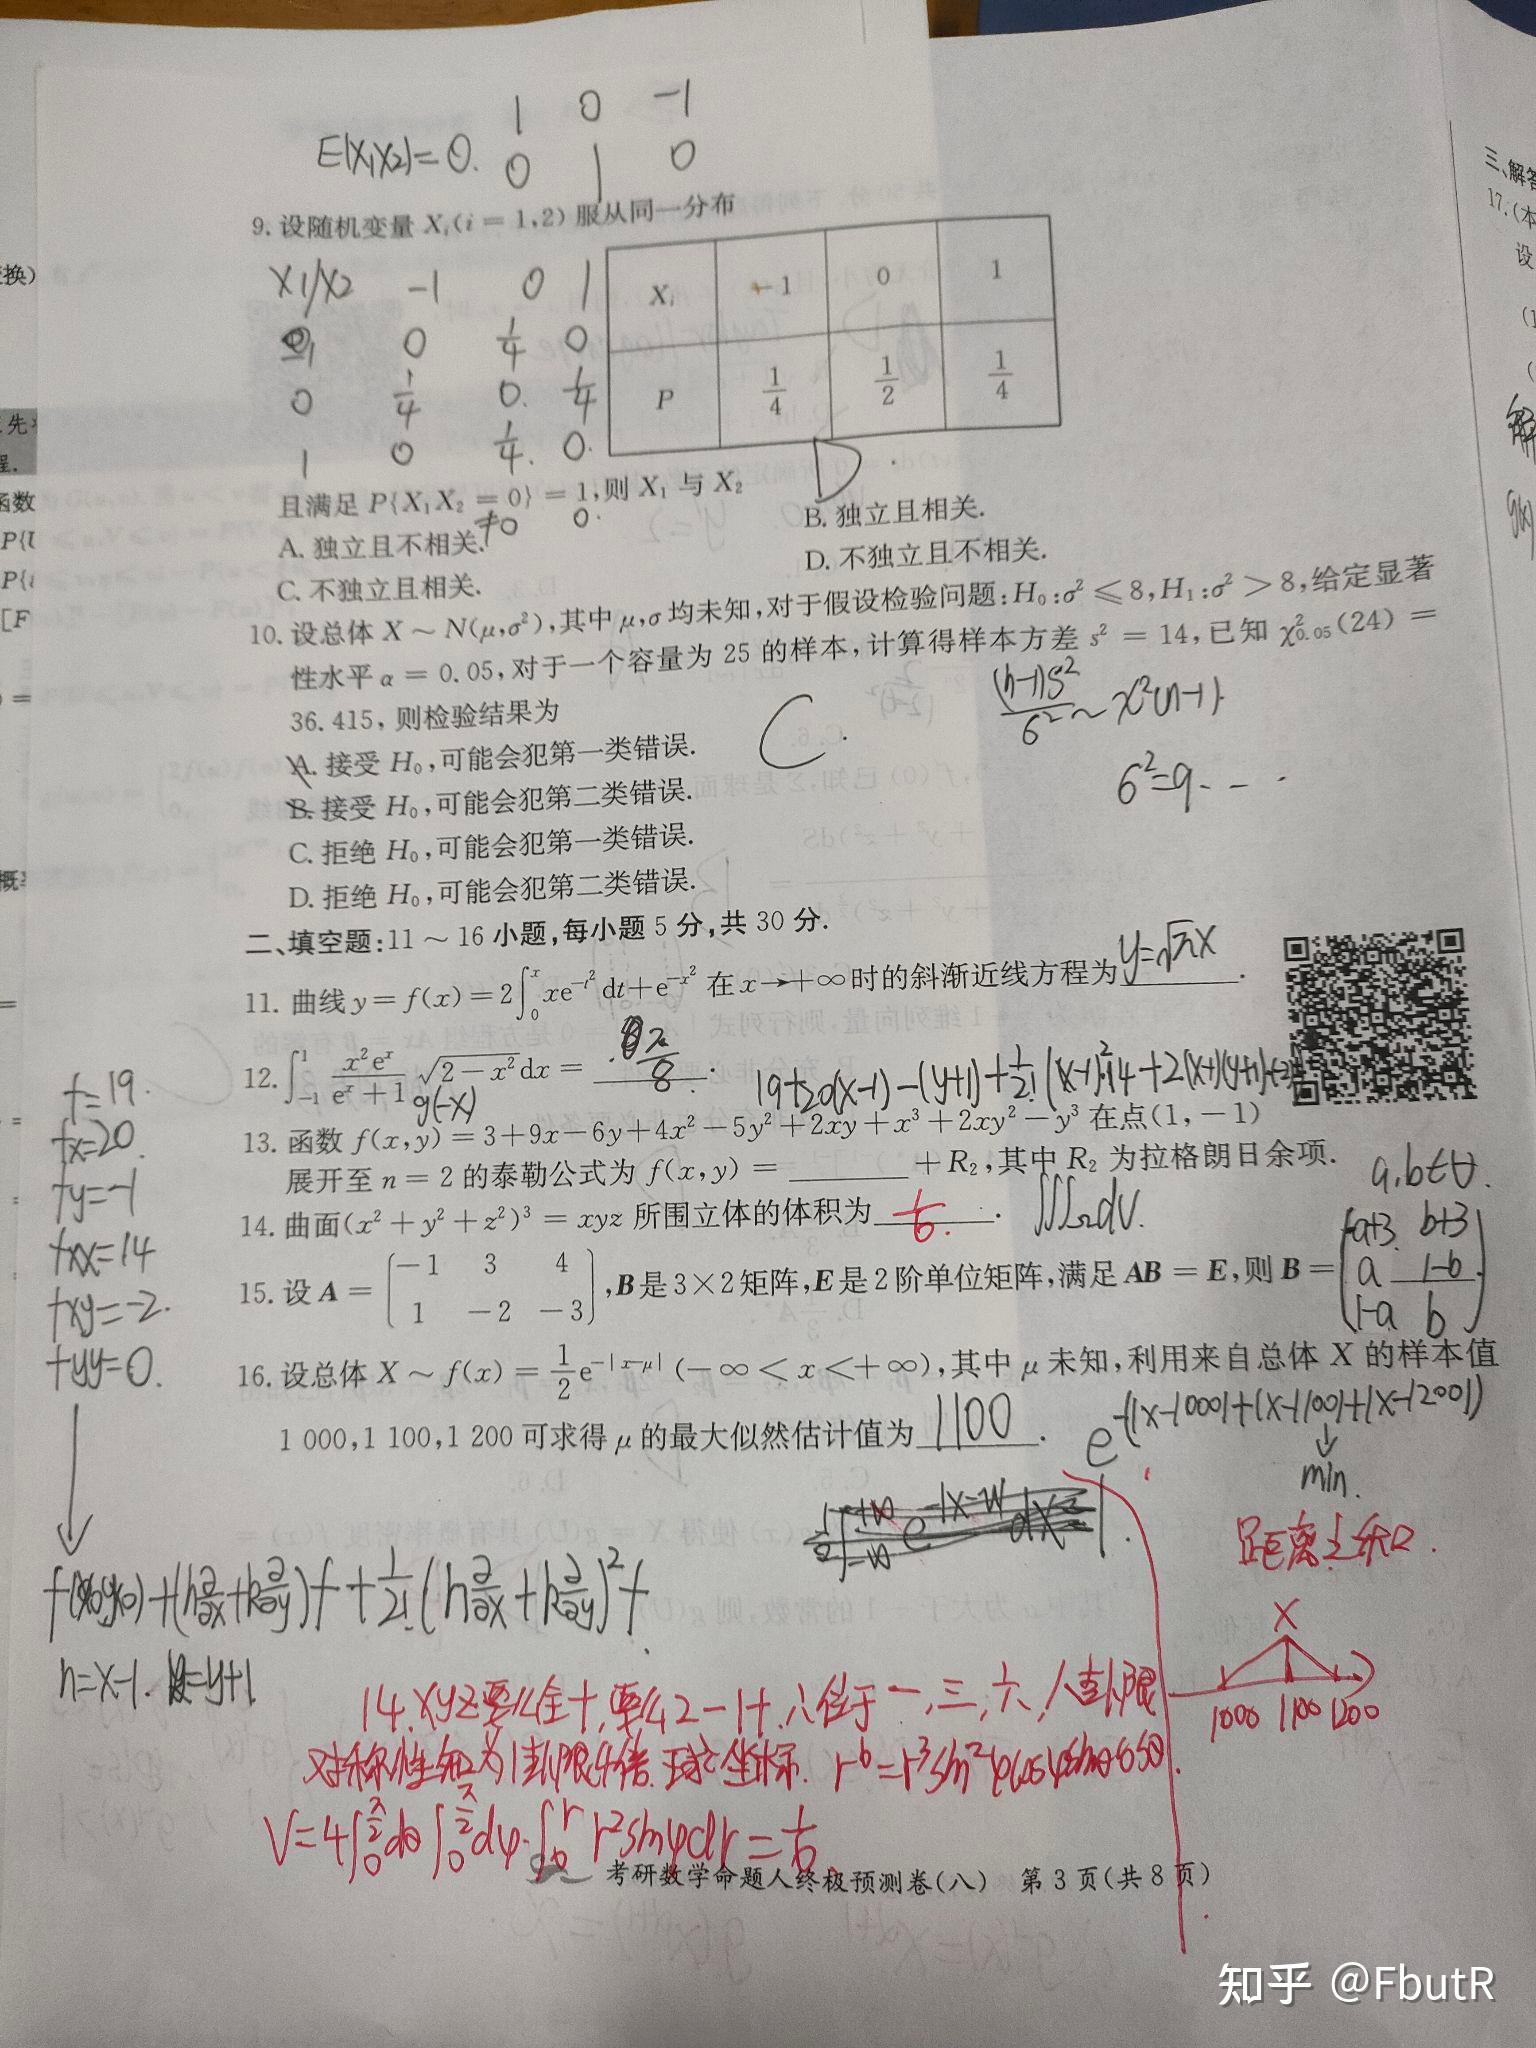 1 0 -1
E(X₁X₂)=0. 0 1 0
9. 设随机变量 Xᵢ(i = 1,2) 服从同一分布
X1/X2 -1 0 1
-1 0 1/4 0
0 1/4 0 1/4
1 0 1/4 0
Xᵢ -1 0 1
P 1/4 1/2 1/4
且满足 P{X₁X₂ = 0} = 1,则 X₁ 与 X₂
D.
≠0 0.
A. 独立且不相关.
B. 独立且相关.
C. 不独立且相关.
D. 不独立且不相关.
10. 设总体 X ~ N(μ,σ²),其中 μ,σ 均未知,对于假设检验问题:H₀:σ² ⩽ 8,H₁:σ² > 8,给定显著
性水平 α = 0.05,对于一个容量为 25 的样本,计算得样本方差 s² = 14,已知 χ²₀.₀₅(24) =
36.415,则检验结果为
C.
(n-1)S²/σ² ~ χ²(n-1).
σ²=9. - -
A. 接受 H₀,可能会犯第一类错误.
B. 接受 H₀,可能会犯第二类错误.
C. 拒绝 H₀,可能会犯第一类错误.
D. 拒绝 H₀,可能会犯第二类错误.
二、填空题:11 ~ 16 小题,每小题 5 分,共 30 分.
11. 曲线 y = f(x) = 2∫₀ˣ xe^(-t²)dt+e^(-x²) 在 x→+∞时的斜渐近线方程为 y=√πx .
12. ∫₋₁¹ x²eˣ/(eˣ+1) √(2-x²)dx = π/8 .
g(-x)
19+20(x-1)-(y+1)+1/2!((x-1)²·14+2(x-1)(y+1)(-2))
13. 函数 f(x,y) = 3+9x-6y+4x²-5y²+2xy+x³+2xy²-y³ 在点(1,-1)
展开至 n = 2 的泰勒公式为 f(x,y) = ______ +R₂,其中 R₂ 为拉格朗日余项.
14. 曲面(x²+y²+z²)³ = xyz 所围立体的体积为 1/6 . ∭Ω dV.
a,b∈
15. 设 A = (-1 3 4
1 -2 -3),B 是 3×2 矩阵,E 是 2 阶单位矩阵,满足 AB = E,则 B =
b+3
a 1-b
1-a b
16. 设总体 X ~ f(x) = 1/2 e^(-|x-μ|) (-∞ < x < +∞),其中 μ 未知,利用来自总体 X 的样本值
1 000,1 100,1 200 可求得 μ 的最大似然估计值为 1100 .
e^-(|x-1000|+|x-1100|+|x-1200|)
↓
min.
距离之和.
X
1000 1100 1200
f=19.
fx=20.
fy=-1
fxx=14
fxy=-2.
fyy=0.
f(x₀,y₀)+(h∂/∂x+k∂/∂y)f+1/2!(h∂/∂x+k∂/∂y)²f
h=x-1. k=y+1
14.xyz要么全+,要么2-1+,∴位于一,三,六,八卦限
对称性知为1卦限4倍.球坐标. r⁶=r³sin²φcosφsinθcosθ.
V=4∫₀^(π/2)dθ∫₀^(π/2)dφ·∫₀^r r²sinφdr=1/6.
考研数学命题人终极预测卷(八) 第 3 页(共 8 页)
三、解答
17.(本
设
换)
先
程.
函数
P{U
[F
知乎 @FbutR